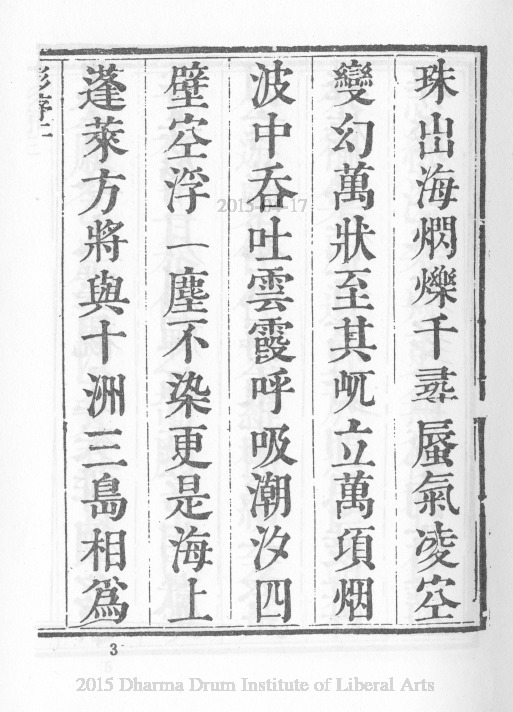 珠出海燗爍千尋蜃氣凌空
變幻萬狀至其屼立萬項烟
波中吞吐雲霞呼吸潮汐四
壁空浮一塵不染更是海上
蓬萊方將與十洲三島相爲
序二
3
2015-04-17
2015 Dharma Drum Institute of Liberal Arts